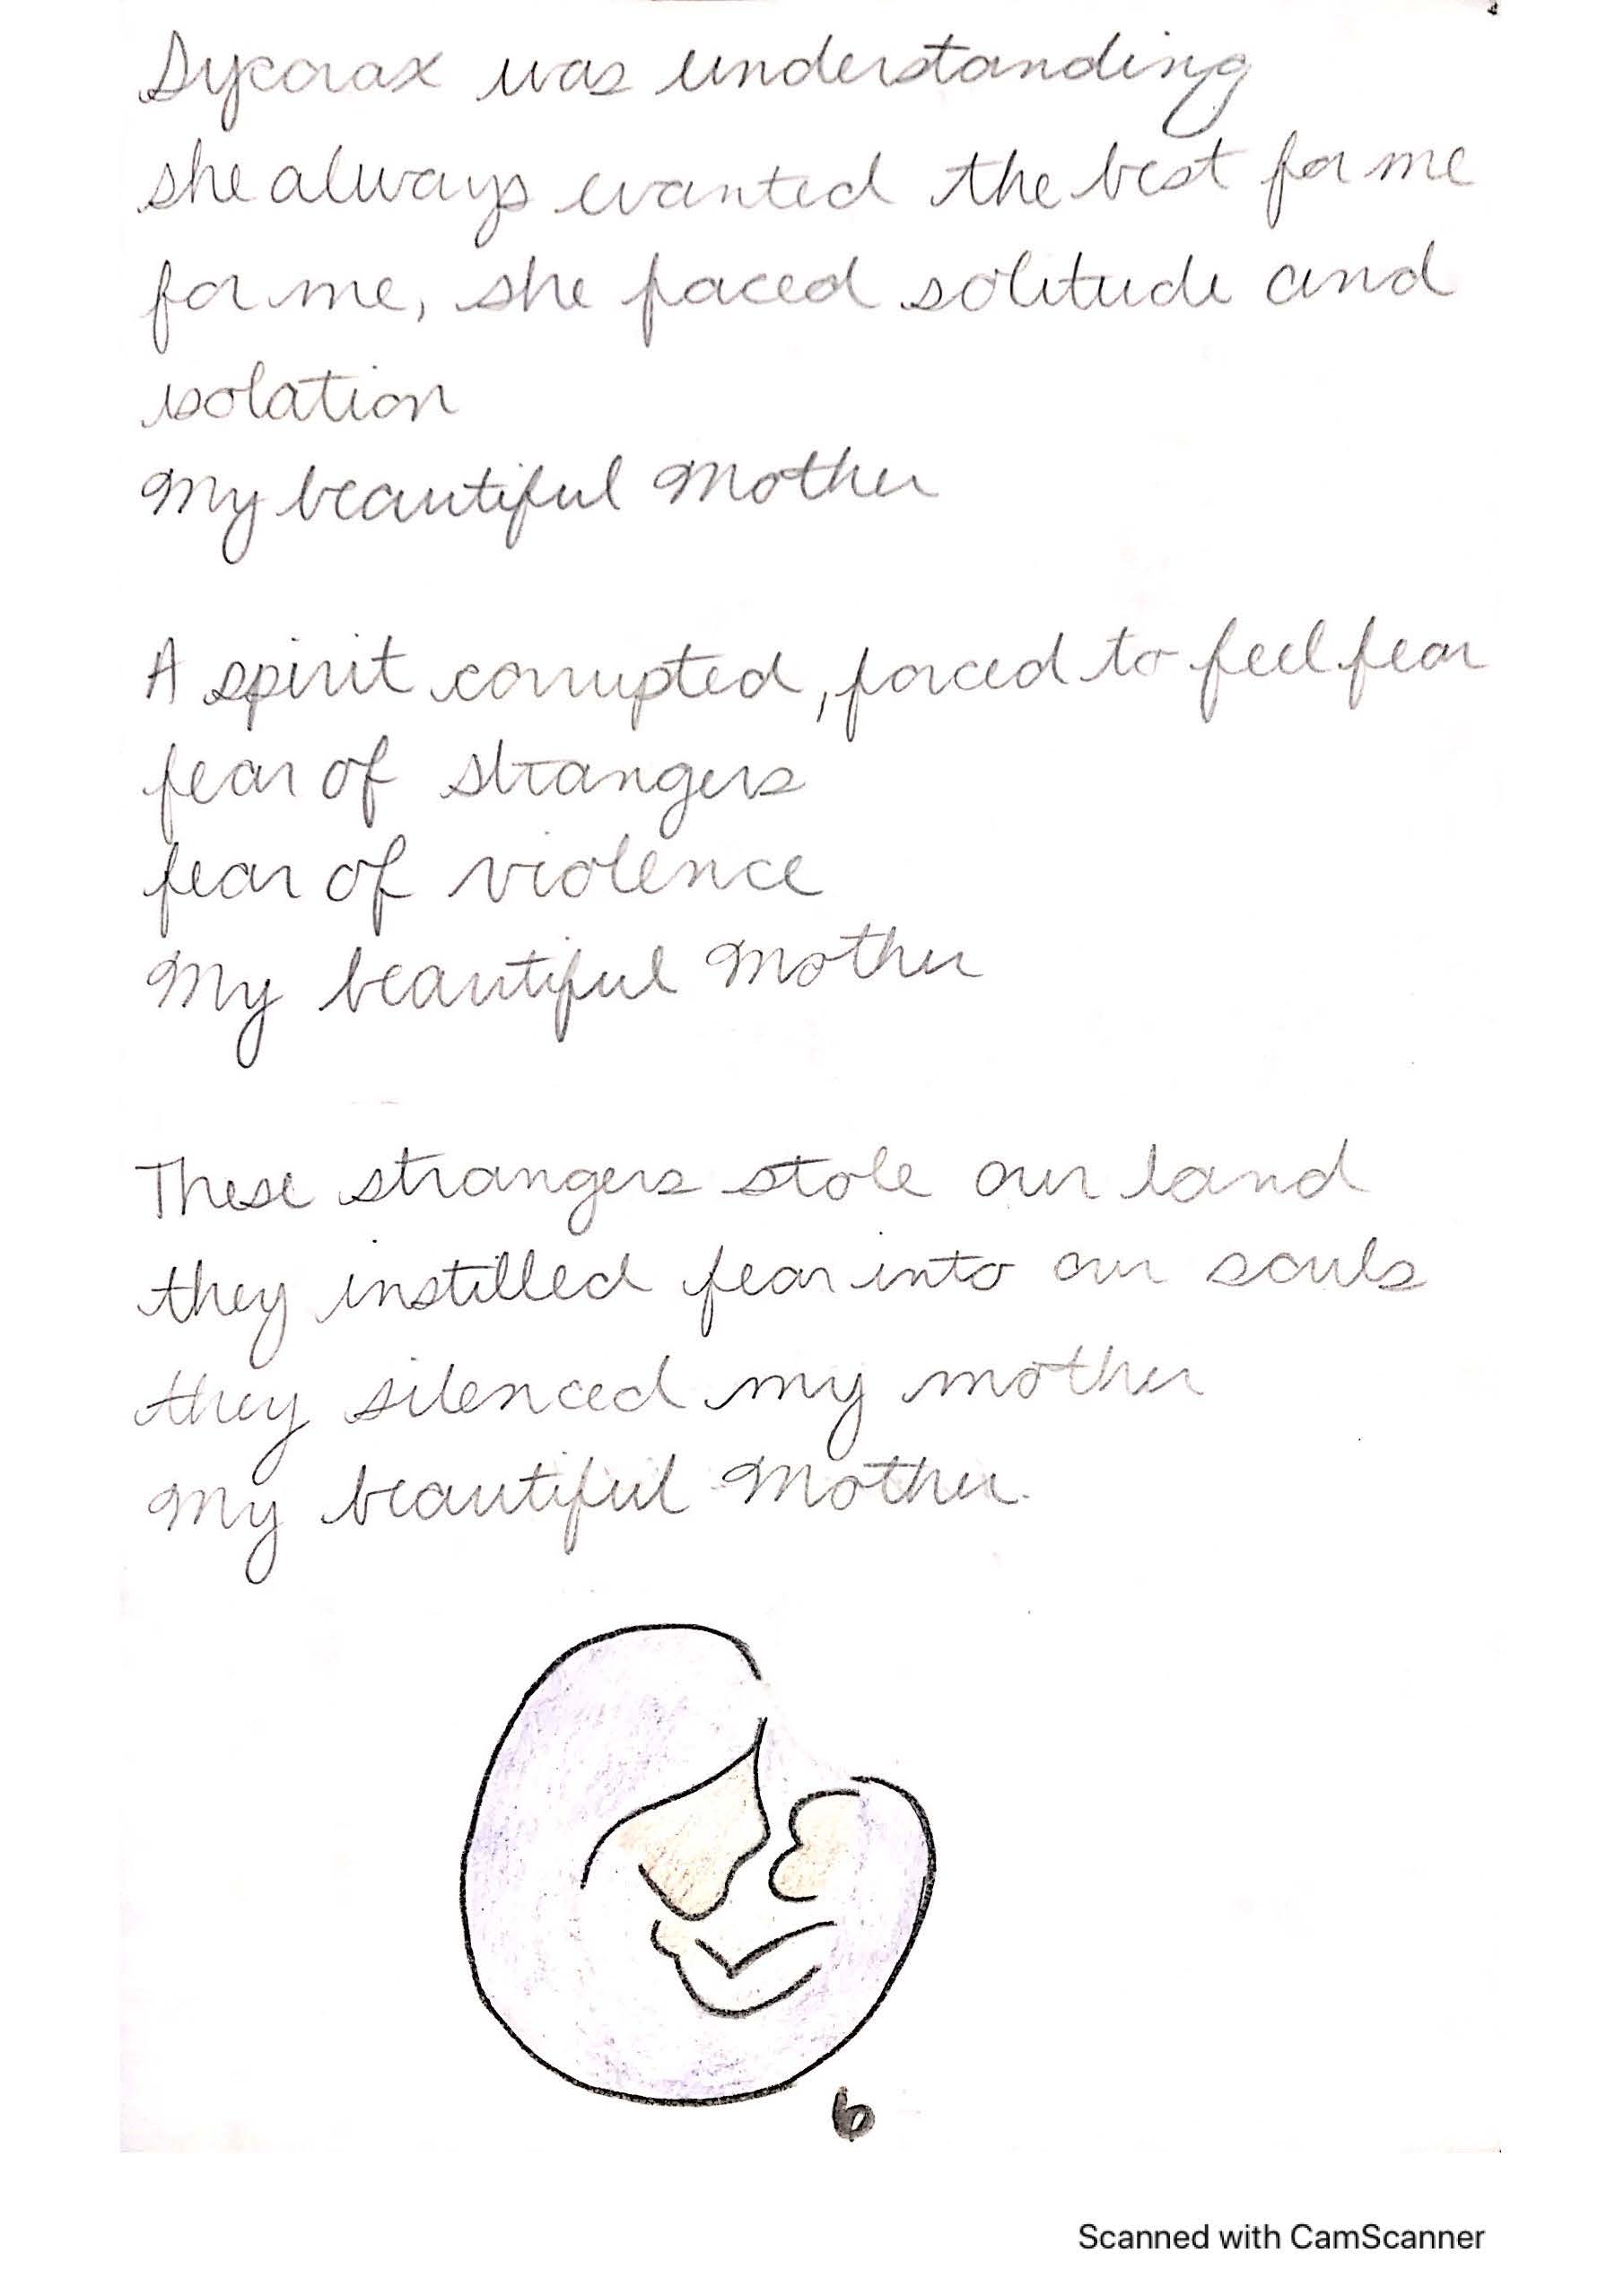 Sycorax was understanding
she always wanted the best for me
for me, she faced solitude and
isolation
My beautiful Mother
A spirit corrupted, forced to feel fear
fear of strangers
fear of violence
My beautiful Mother
These strangers stole our land
they instilled fear into our souls
they silenced my mother
My beautiful Mother.
6
Scanned with CamScanner